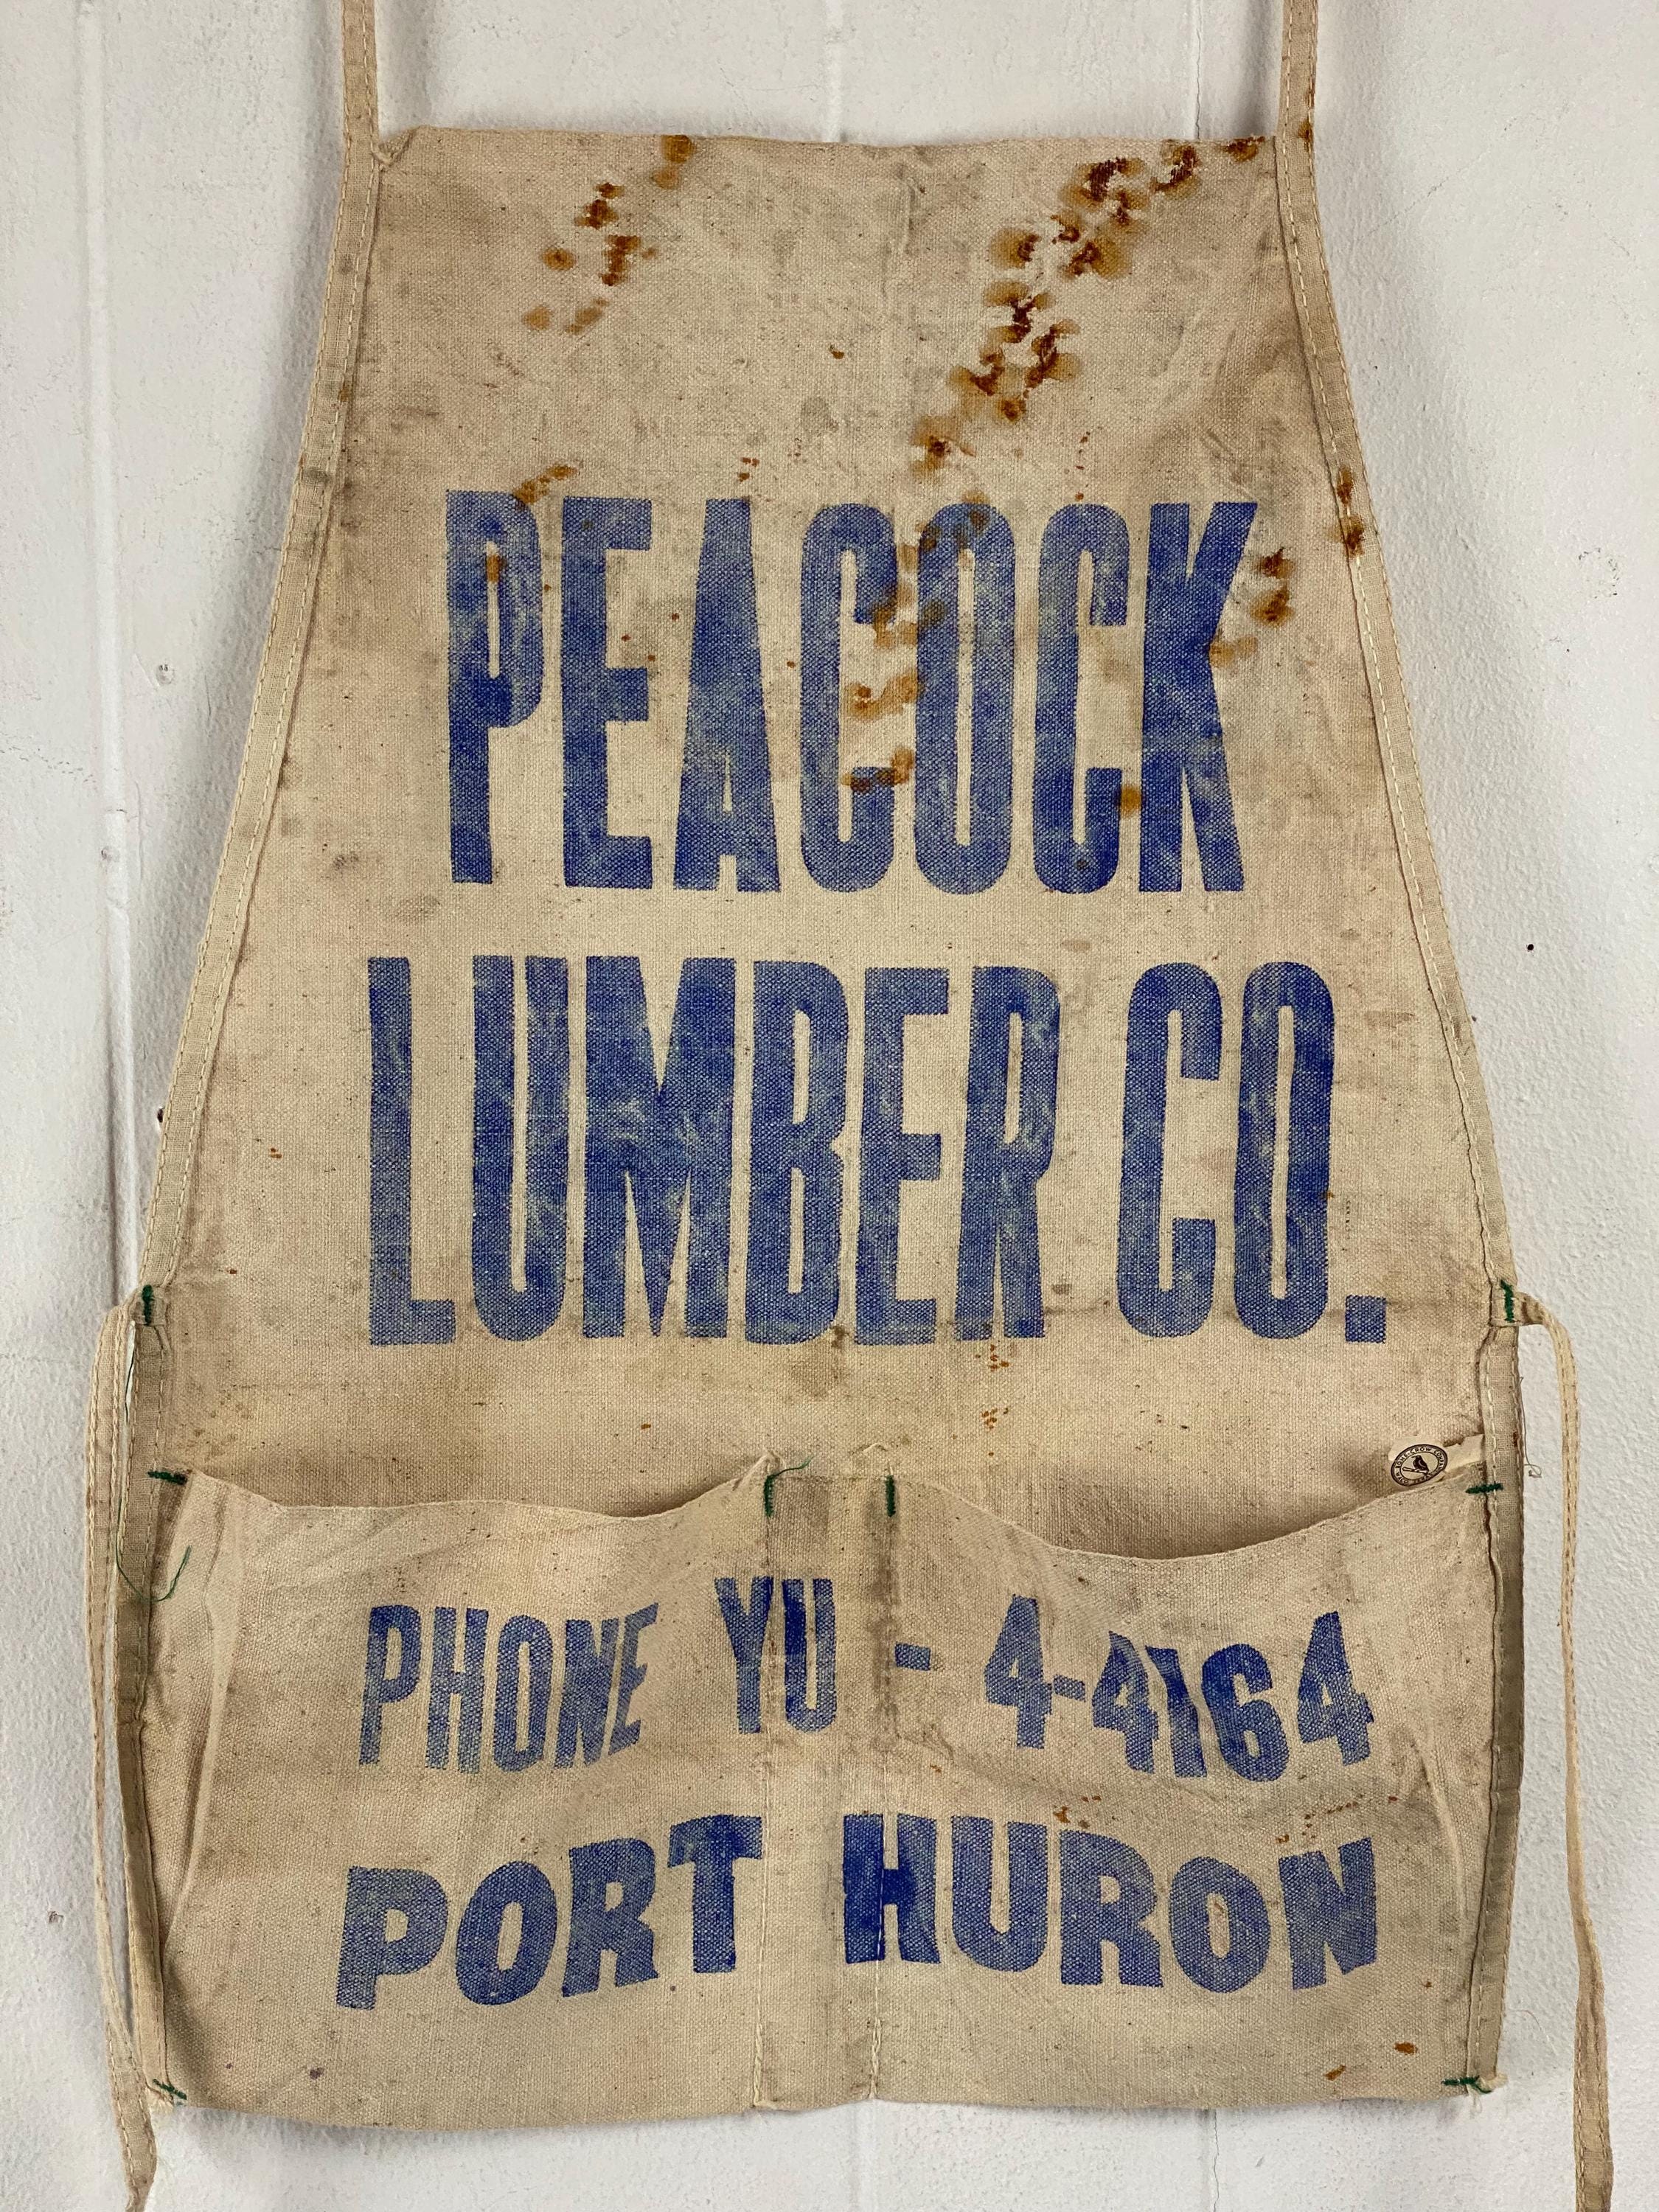 PEACOCK
LUMBER CO.
PHONE YU - 4-4164
PORT HURON